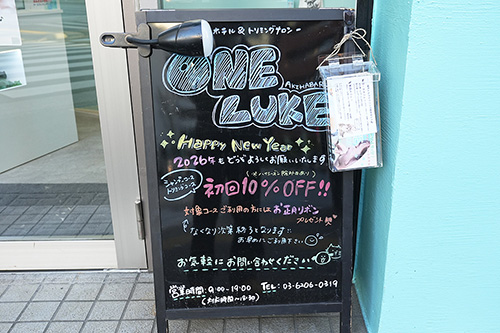 ホテル & トリミングサロン -
ONE
AKIHABARA
LUKE
Happy New Year
2026年もどうぞよろしくお願いいたします
シャンプーコース
トリミングコース
初回10%OFF!!
対象コースご利用の方には お正月リボン
プレゼント
なくなり次第終了となります
お早めにご利用下さい
お気軽にお問い合わせください
営業時間: 9:00-19:00 TEL: 03-6206-0319